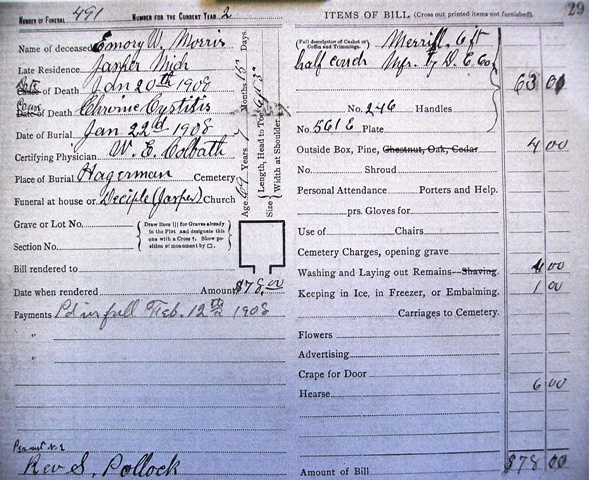 NUMBER OF FUNERAL 491 NUMBER FOR THE CURRENT YEAR 2
Name of deceased Emory W. Morris
Late Residence Jasper Mich
Date Cause of Death Jan 20th 1908
Cause Date of Death Chronic Cystitis
Date of Burial Jan 22nd 1908
Certifying Physician W. E. Colbath
Place of Burial Hagerman Cemetery
Funeral at house or Deciple (Jasper) Church
Grave or Lot No.
Section No.
Draw lines ||| for Graves already in the Plot and designate this one with a Cross †. Show position of monument by □.
Bill rendered to
Date when rendered Amount $78.00
Payments Pd in full Feb. 12th 1908
"
"
Rev S. Pollock
Age Years Months Days
Size Length, Head to Toe
Width at Shoulder
ITEMS OF BILL (Cross out printed items not furnished). 29
(Full description of Casket or Coffin and Trimmings. Merrill 6 ft
half couch Mfr. by D. C. Co. 63 00
No. 246 Handles
No. 561 E Plate
Outside Box, Pine, Chestnut, Oak, Cedar 4 00
No. Shroud
Personal Attendance Porters and Help.
prs. Gloves for
Use of Chairs
Cemetery Charges, opening grave
Washing and Laying out Remains Shaving 4 00
Keeping in Ice, in Freezer, or Embalming. 1 00
Carriages to Cemetery.
Flowers
Advertising
Crape for Door
Hearse 6 00
Amount of Bill $78 00